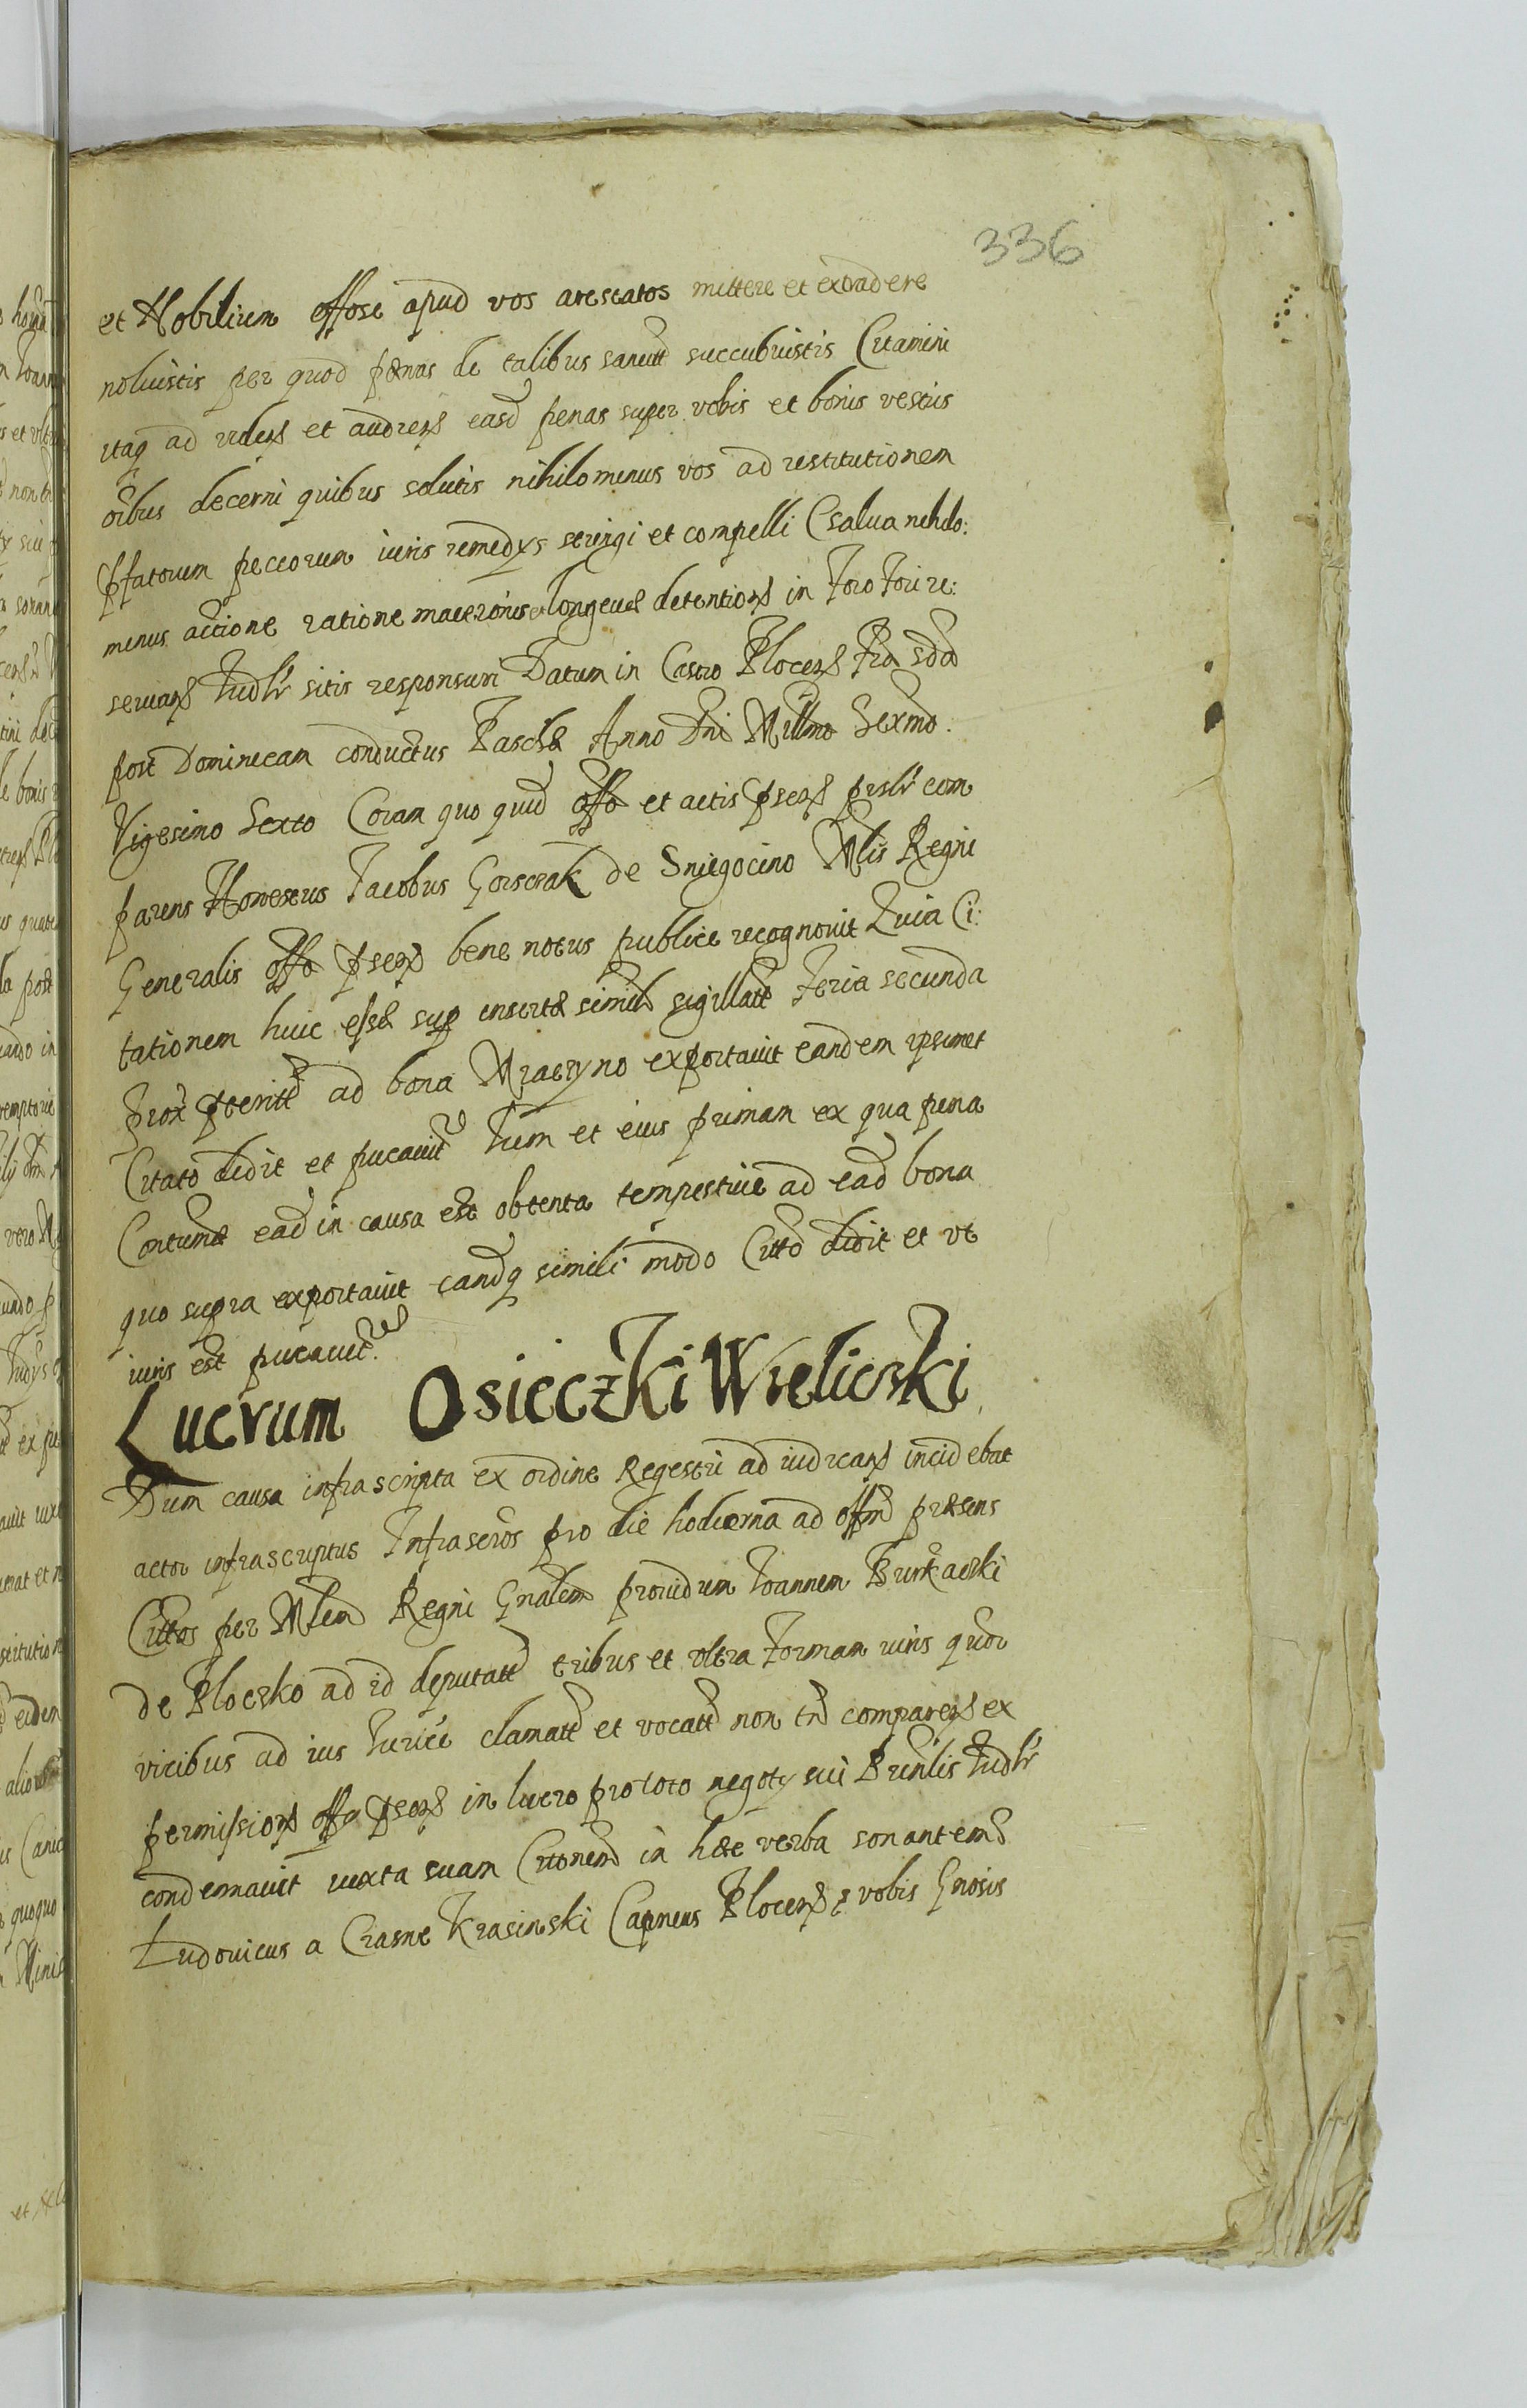 336
et Nobilium offose apud vos arestatos mittere et extradere
noluistis per quod pænas de talibus sancitt succubuistis Citamini
itaq ad videns et audiens easd penas super vobis et bonis vestris
oibus decerni quibus solutis nihilominus vos ad restitutionem
pfatorum peccorum iuris remedys stringi et compelli Csalua nihilo:
minus actione ratione macerônis et longeuæ detentions in foro fori re:
seruans Iudlr sitis responsuri Datum in Castro Plocens fria sdâ
post Dominicam conductus Paschæ Anno Dni Millmo Sexmo.
Vigesimo Sexto Coram quo quid offo et actis psens psblr com
parens Honestus Jacobus Gorscrak de Sniegocino Mlis Regni
Generalis offo psens bene notus publice recognouit Quia Ci:
tationem huic esse sup insertæ simil sigillatt feria secunda
prox pteritt ad bona Mraczyno exportauit eandem ipsimet
Citato dedit et pucauit Tum et eius primam ex qua pena
Contumæ ead in causa est obtenta tempestiue ad ead bona
quo supra exportauit eandq simili modo Citto dedit et vt
iuris est pucauit.
Lucrum Osieczki Wielicski
Dum causa infrascripta ex ordine Regestri ad iudicans incidebat
actor infrascriptus Infrascros pro die hodierna ad offm præsens
Cittos per Mlem Regni Gnalem prouidum Ioannem Burkacki
de Ploczko ad id deputatt tribus et vltra formam iuris quor
vicibus ad ius Iurice clamatt et vocatt non tn comparens ex
permissions offo psens in lucro pro toto negoty sui Prinlis Iudlr
condemnauit iuxta suam Citonem in hæc verba sonantem
Ludouicus a Crasne Krasinski Capneus Plocens vobis Gnosis